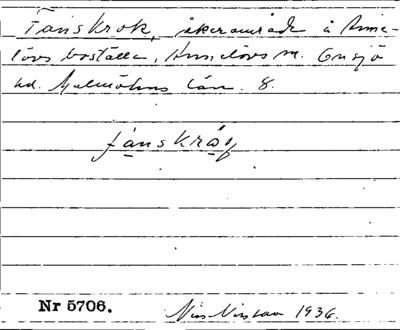 Tånskrok, åkerområde å Anne-
lövs boställe, Annelövs sn. Onsjö
hd. Malmöhus län. 8.
fånskråg
Nr 5706.
Nils Nilsson 1936.